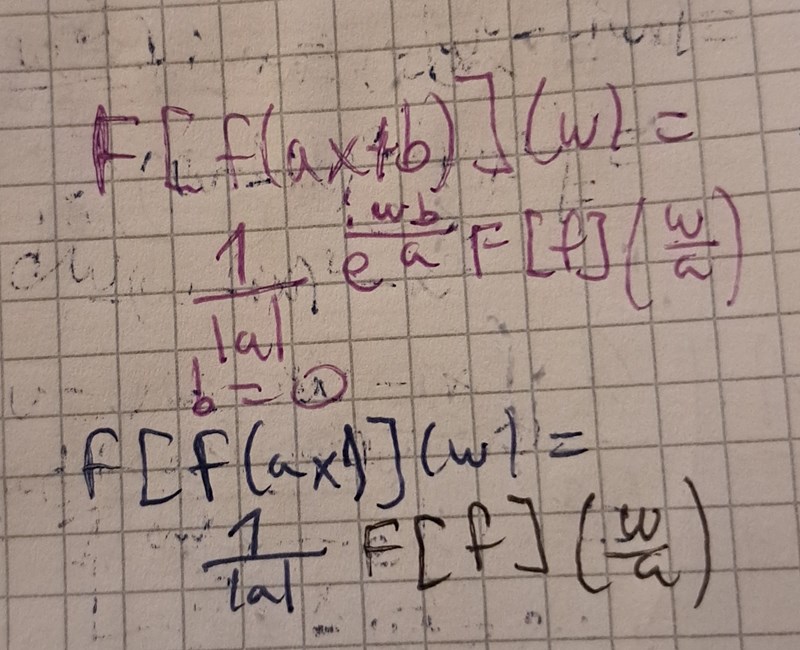 F[f(ax+b)](w) =
1/|a| e^(iwb/a) F[f](w/a)
b = 0
F[f(ax)](w) =
1/|a| F[f](w/a)